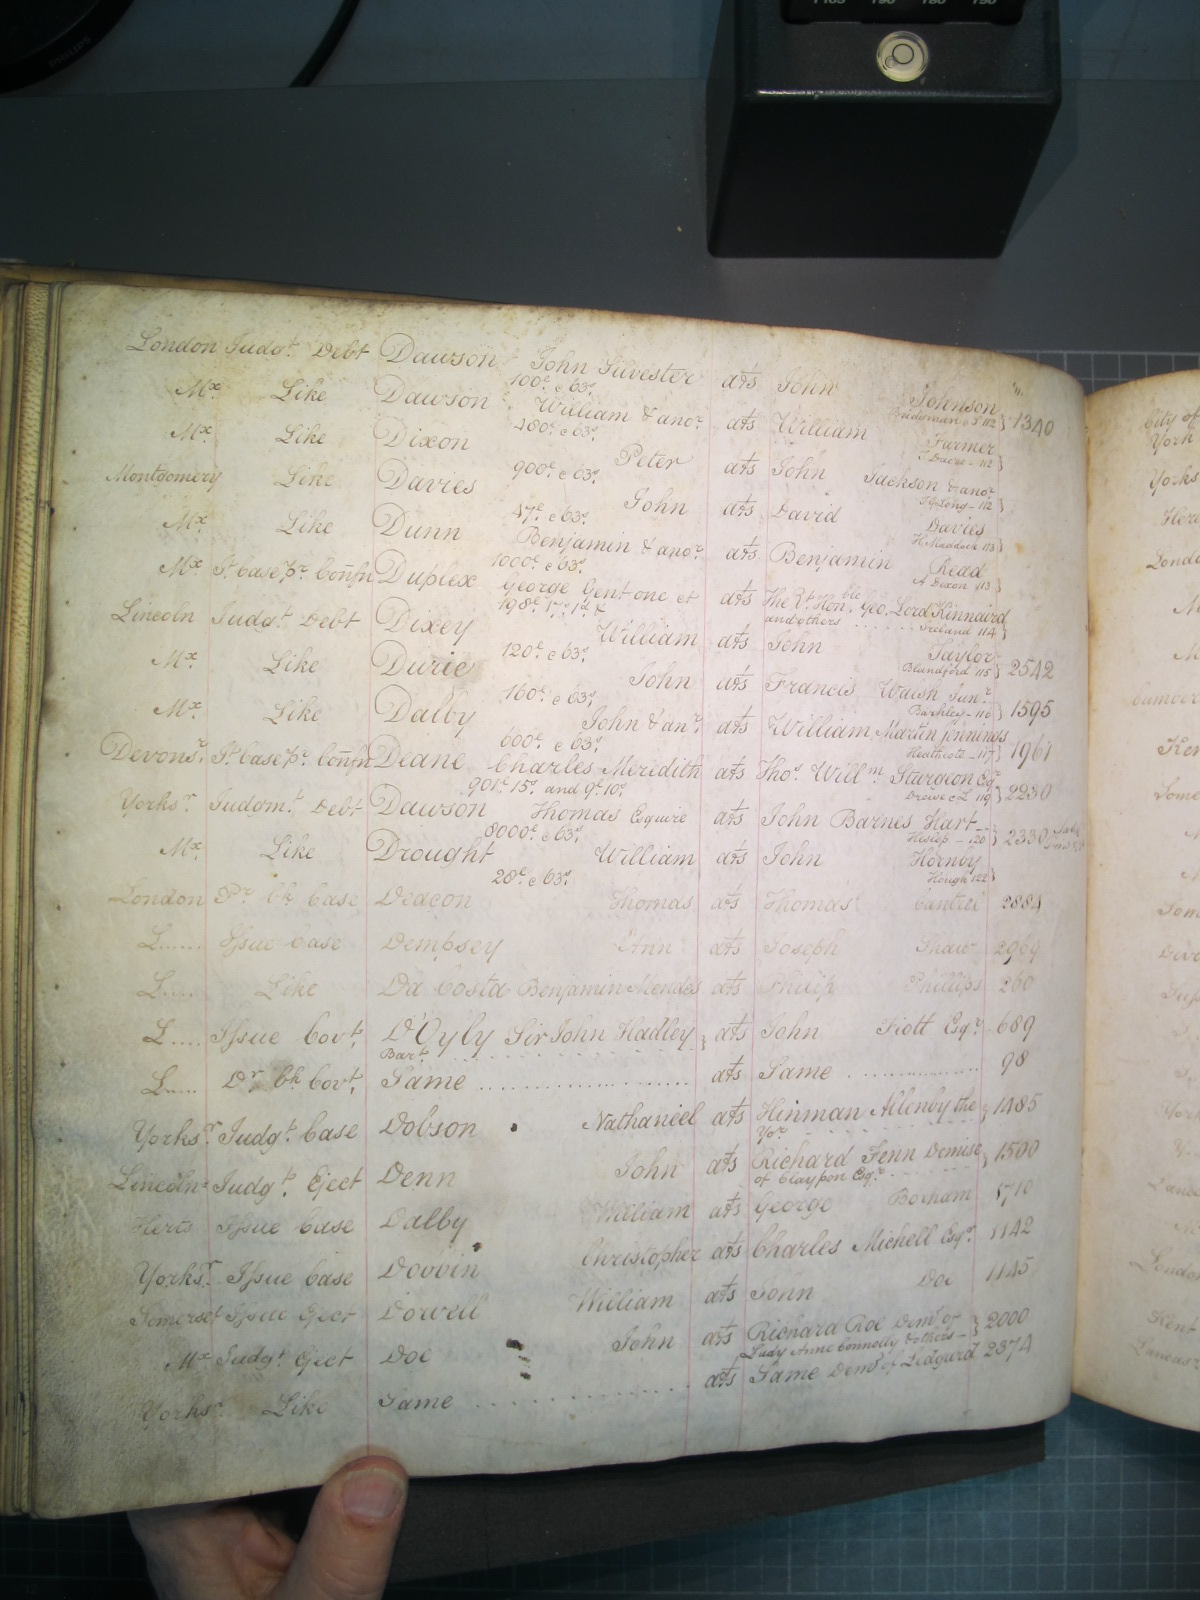 PHILIPS
London Judgt. Debt Dawson John Silvester ats John Johnson
100£ e 63s. Bridgman e S 112 } 1340
Mx. Like Dawson William & anor. ats William Farmer
480£ e 63s. T. Dacre - 112 }
Mx. Like Dixon Peter ats John Jackson & anor.
900£ e 63s. Long - 112 }
Montgomery Like Davies John ats David Davies
47£ e 63s. H. Maddock 113 }
Mx. Like Dunn Benjamin & anor. ats Benjamin Read
1000£ e 63s. A Dixon 113 }
Mx. Jt. Case pr. Confn Duplex George Gent one et ats The Rt. Honble. Geo. Lord Kinnaird
198£ 17s 1d & and others ...... Ireland 114 }
Lincoln Judgt. Debt Dixey William ats John Taylor
120£ e 63s. Blandford 115 } 2542
Mx. Like Durie John ats Francis Walsh Junr.
160£ e 63s. Barkley - 116 } 1595
Mx. Like Dalby John & anr. ats William Martin Jennings
600£ e 63s. Heathcote - 117 } 1961
Devonsr. Jt. Case pr. Confn Deane Charles Meredith ats Thos. Willm. Sturgeon Esqr.
901£ 15s. and 9£ 10s. Drewe e L 119 } 2230
Yorksr. Judgmt. Debt Dawson Thomas Esquire ats John Barnes Hart
8000£ e 63s. Heslop - 120 } 2330
Mx. Like Drought William ats John Hornby
28£ e 63s. Hough 122 }
London Pr. bk Case Deacon Thomas ats Thomas Cantrel 2884
L...... Issue Case Dempsey Ann ats Joseph Shaw 2969
L..... Like Da Costa Benjamin Mendes ats Philip Phillips 260
L.... Issue Covt. D'Oyly Sir John Hadley } ats John Fiott Esqr. 689
Bart.
L..... Dr. bk Covt. Same ats Same 98
Yorksr. Judgt. Case Dobson Nathaneel ats Hinman Allenby the } 1485
Yor.
Lincoln Judgt. Eject Denn John ats Richard Fenn Demise } 1500
of Claypon Esqr.
Herts Issue Case Dalby William ats George Boxham 1710
Yorksr. Issue Case Dovvin Christopher ats Charles Michell Esqr. 1142
Somerset Issue Eject Dorvell William ats John Doe 1145
Mx Judgt. Eject Doe John ats Richard Roe Demr. of } 2000
Lady Anne Connolly & others
Yorksr. Like Same ats Same Demr. of Lidgard 2374
City of
York
Yorks
London
Kent